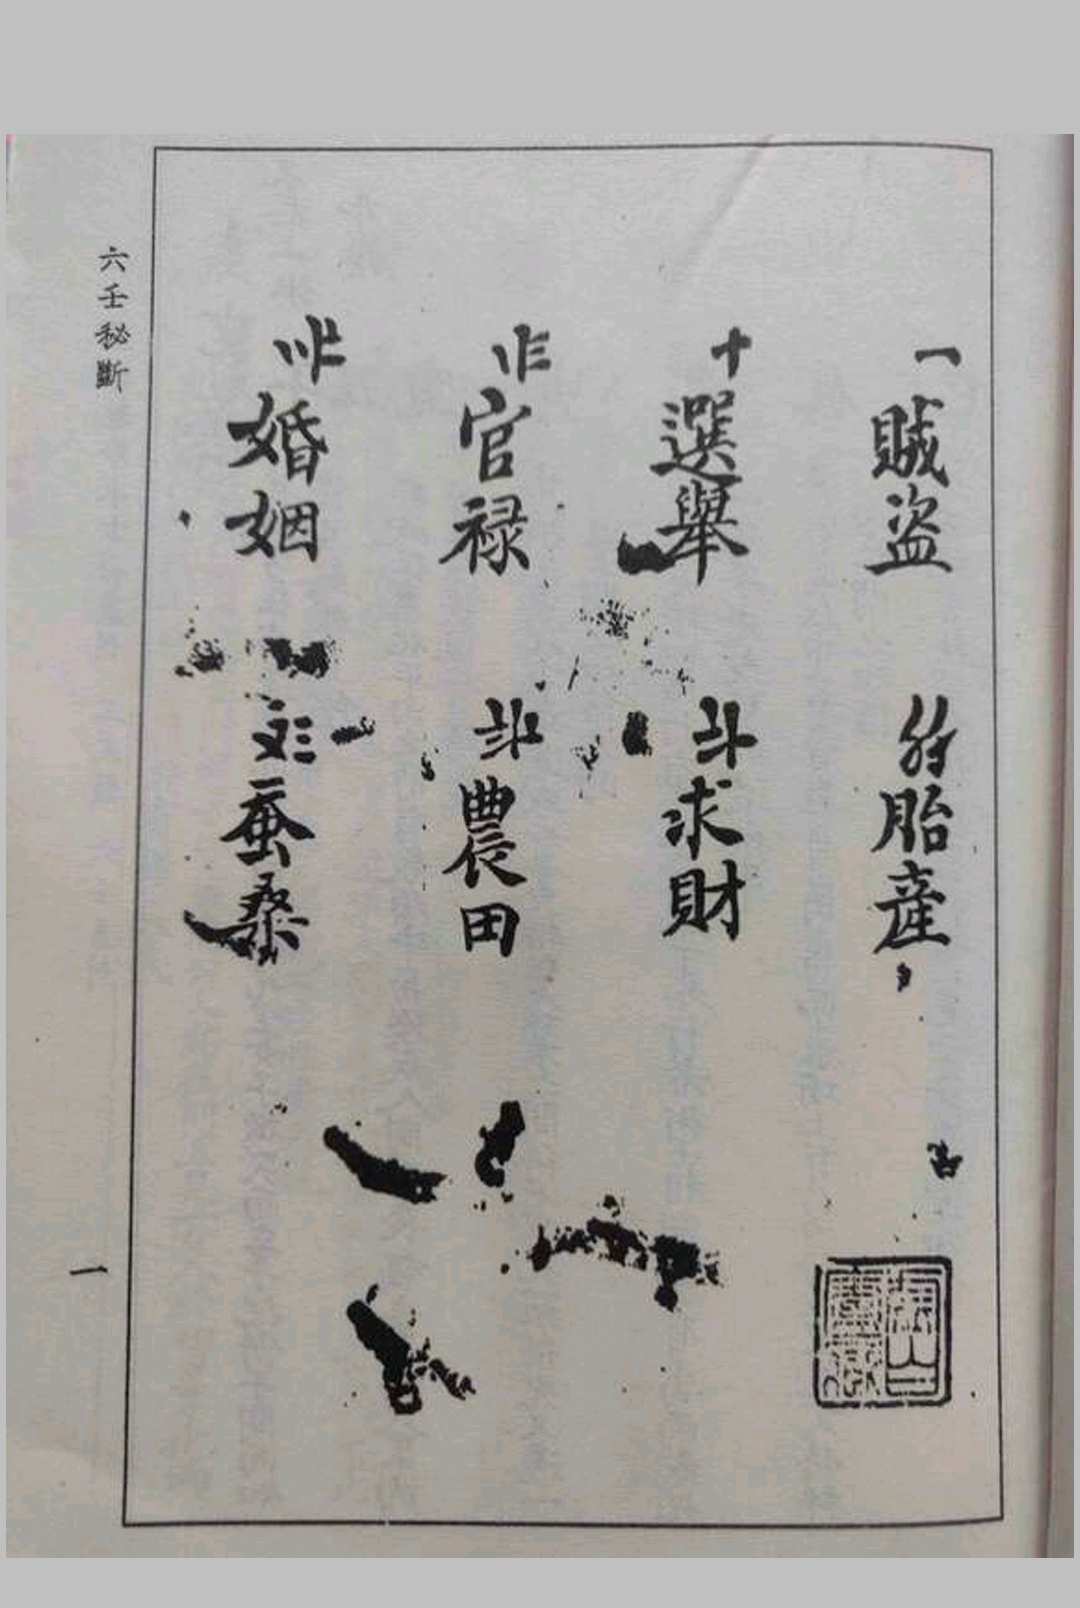 一 賊盗
胎産
十 選舉
求財
官禄
農田
婚姻
蚕桑
六壬秘斷
一